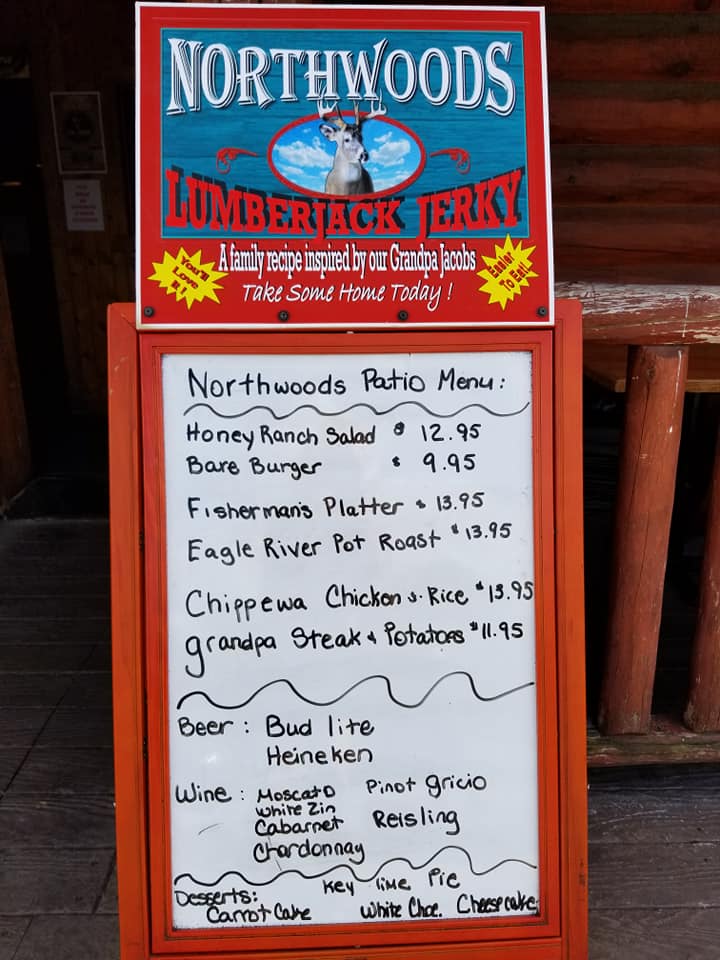 NORTHWOODS
LUMBERJACK JERKY
A family recipe inspired by our Grandpa Jacobs
You'll
Love
It!
Easier
To Eat!
Take Some Home Today!
Northwoods Patio Menu:
Honey Ranch Salad $ 12.95
Bare Burger $ 9.95
Fisherman's Platter $ 13.95
Eagle River Pot Roast $13.95
Chippewa Chicken & Rice $13.95
grandpa Steak & Potatoes $11.95
Beer: Bud lite
Heineken
Wine: Moscato Pinot gricio
White Zin
Cabarnet Reisling
Chardonnay
Desserts: Key lime Pie
Carrot Cake White Choc. Cheesecake